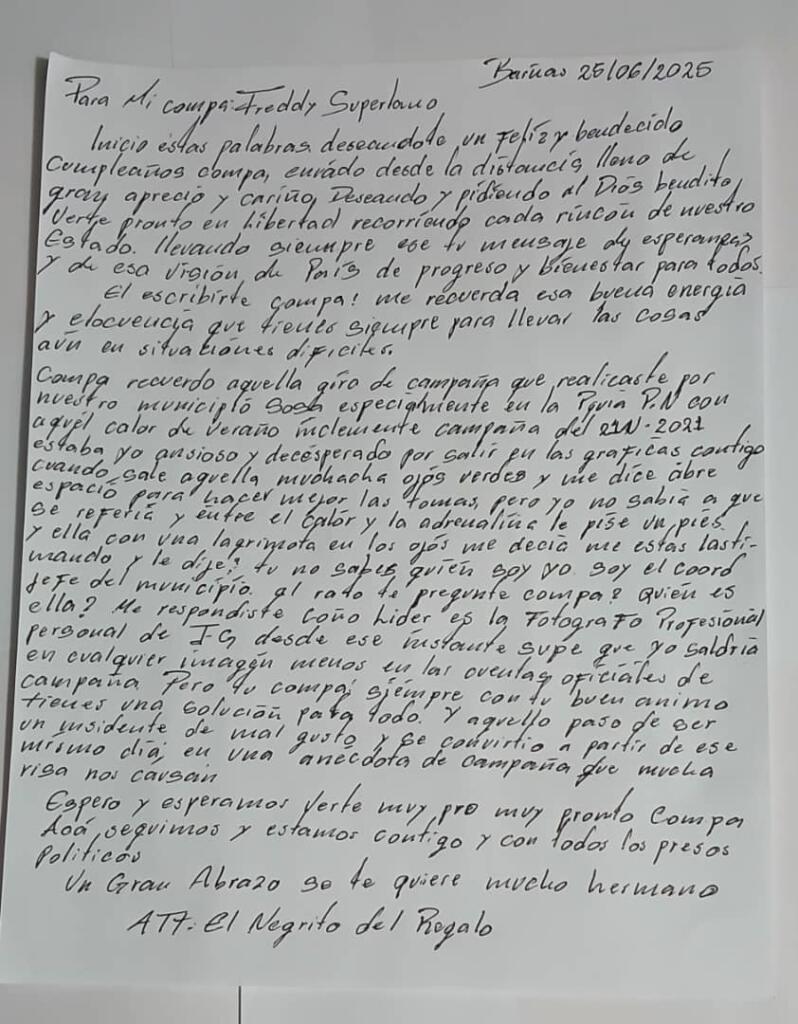 Barinas 25/06/2025
Para Mi compa: Freddy Superlano
Inicio estas palabras deseandote un Feliz y bendecido
Cumpleaños compa, enviado desde la distancia lleno de
gran aprecio y cariño, Deseando y pidiendo al Dios bendito,
verte pronto en Libertad recorriendo cada rincón de nuestro
Estado. llevando siempre ese tu mensaje de esperanzas
y de esa visión de País de progreso y bienestar para todos.
El escribirte compa! me recuerda esa buena energía
y elocuencia que tienes siempre para llevar las cosas
aún en situaciones dificiles.
Compa recuerdo aquella gira de campaña que realizaste por
nuestro municipio Sosa especialmente en la P.N con
aquél calor de verano inclemente campaña del 21N-2021
estaba yo ansioso y decesperado por salir en las graficas contigo
cuando sale aquella muchacha ojos verdes y me dice abre
espació para hacer mejor las tomas, pero yo no sabia a que
se referia y entre el calor y la adrenalina le pise un pies.
y ella con una lagrimota en los ojos me decia me estas lasti-
mando y le dije; tu no sabes quién soy yo. soy el coord
Jefe del municipio. al rato te pregunte compa? Quién es
ella? Me respondiste coño Lider es la Fotografo Profesional
personal de JG desde ese instante supe que yo saldria
en cualquier imagén menos en las cuentas oficiales de
campaña Pero tu compa; siempre con tu buen animo
tienes una solución para todo. Y aquello paso de ser
un insidente de mal gusto y se convirtio a partir de ese
mismo dia; en una anécdota de campaña que mucha
risa nos causan
Espero y esperamos verte muy pro muy pronto Compa
Acá, seguimos y estamos contigo y con todos los presos
Politicos
Un Gran Abrazo se te quiere mucho hermano
ATT: El Negrito del Regalo